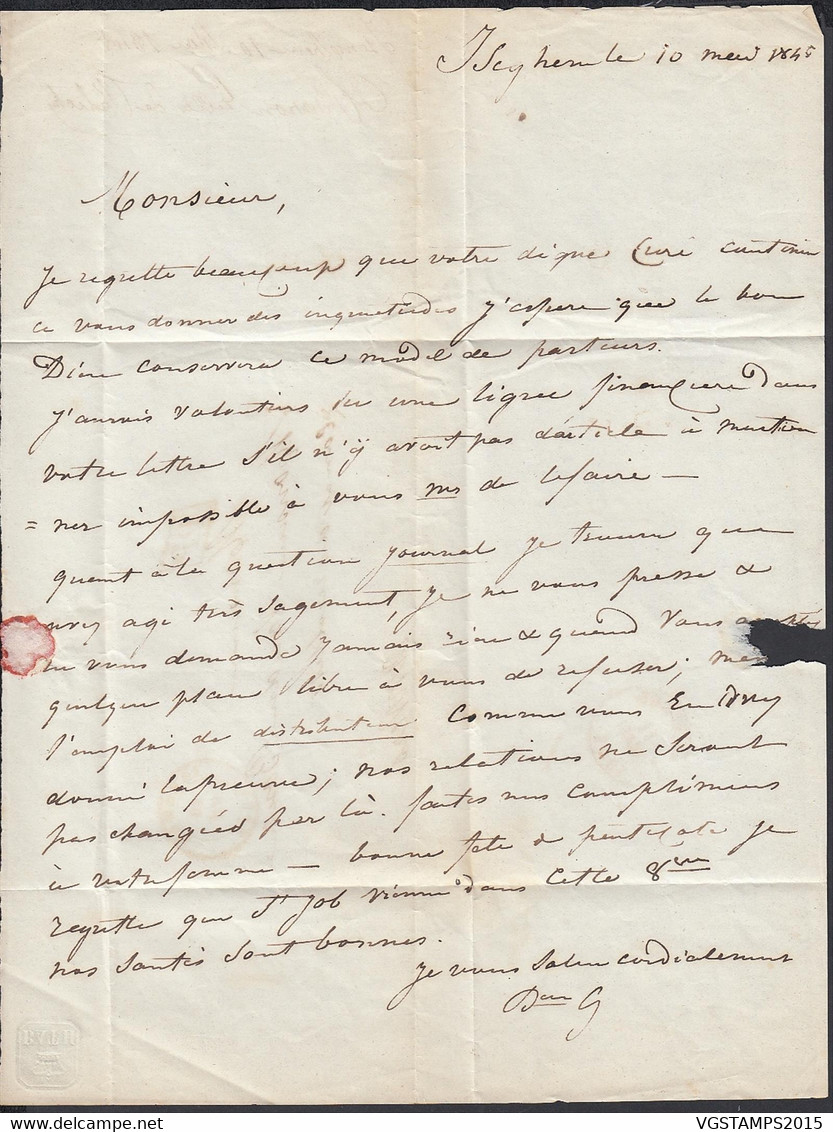 Iseghem le 10 mai 1845
Monsieur,
Je regrette beaucoup que votre digne Curé continue
a vous donner des inquietudes j'espere que le bon
Dieu conservera ce model de pasteurs.
J'aurais volontiers vu une ligne financiere dans
votre lettre s'il n'ÿ avoit pas d'article à mention
= ner impossible à vous de le faire —
quant à la question journal je trouve que
avez agi très sagement, je ne vous presse &
ne vous demande jamais rien & quand vous
quelque place libre à vous de refuser;
l'emploi de distributeur comme vous en avez
donné la preuve; nos relations ne seront
pas changées par là. faites nos complimens
à votre femme — bonne fête de pentecote je
regrette que St Job vienne dans cette 8me
nos santés sont bonnes.
je vous salue cordialement
Dan G
BATH
VGSTAMPS2015